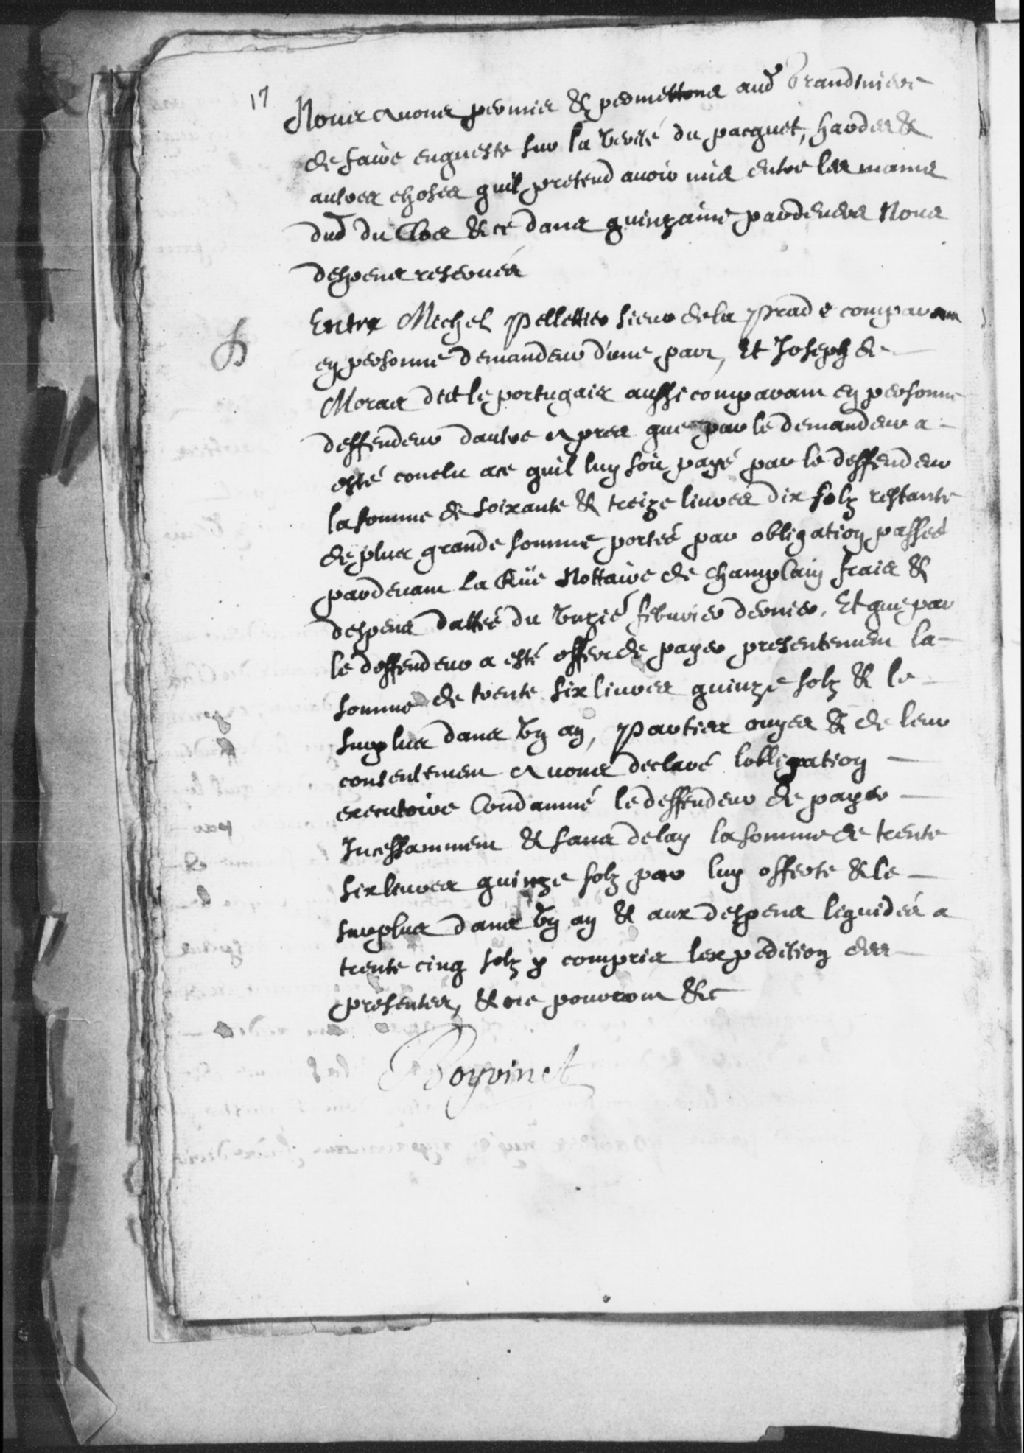 17
Nous avons permis & permettons aud Brandmiere
de faire enqueste sur la verité du pacquet, hardes &
autres choses quil pretend avoir mis entre les mains
dud du Clos & ce dans quinzaine pardevers Nous
despens reservés
Entre Michel Pelletier sieur de la Prade comparan
en personne demandeur d'une part, Et Joseph de
Moras dit le portugais aussi comparant en personne
deffendeur dautre apres que par le demandeur a
esté conclu a ce quil luy soit payé par le deffendeur
la somme de soixante & treize livres dix solz restante
de plus grande somme portée par obligation passée
pardevant La Rüe Nottaire de Champlain frais &
despens dattée du febvrier dernier, Et que par
le deffendeur a esté offert de payer presentement la
somme de trente six livres quinze solz & le
surplus dans un an, Parties ouyes & de leur
consentement avons declaré lobligation
executoire Condamné le deffendeur de payer
Incessamment & sans delay la somme de trente
six livres quinze solz par luy offerte & le
surplus dans un an & aux despens liquidés a
trente cinq solz y compris lexpedition des
presentes, & ne pourront &c
Boyvinet